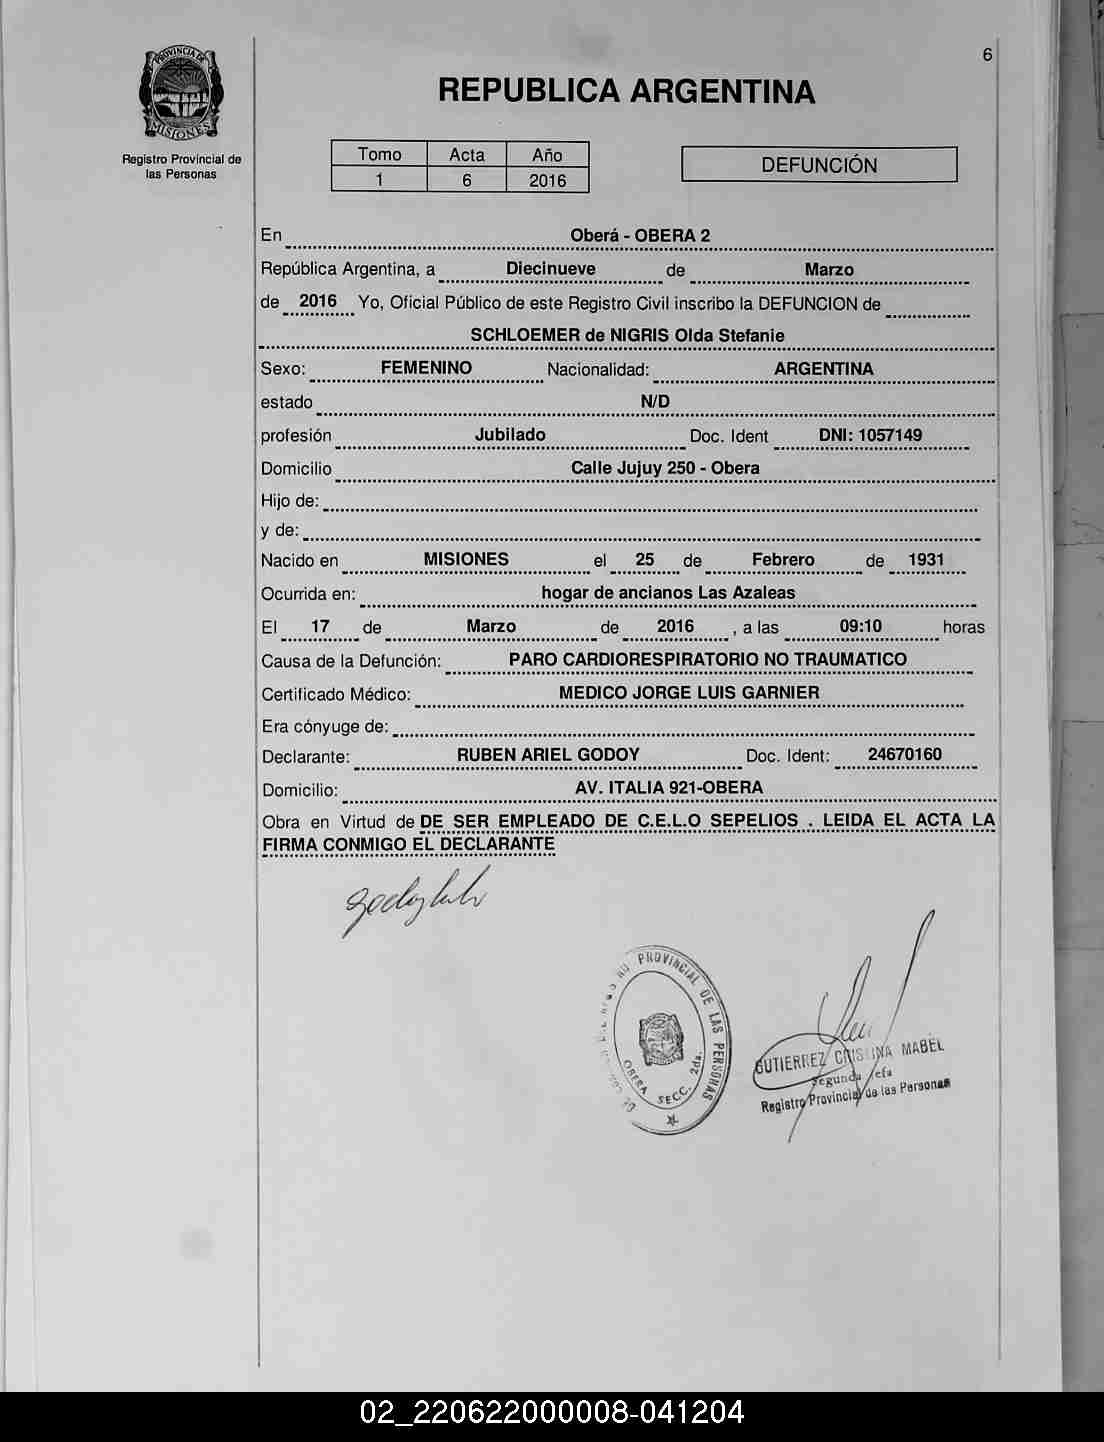 6
PROVINCIA DE
MISIONES
Registro Provincial de
las Personas
REPUBLICA ARGENTINA
Tomo Acta Año
1 6 2016
DEFUNCIÓN
En Oberá - OBERA 2
República Argentina, a Diecinueve de Marzo
de 2016 Yo, Oficial Público de este Registro Civil inscribo la DEFUNCION de
SCHLOEMER de NIGRIS Olda Stefanie
Sexo: FEMENINO Nacionalidad: ARGENTINA
estado N/D
profesión Jubilado Doc. Ident DNI: 1057149
Domicilio Calle Jujuy 250 - Obera
Hijo de:
y de:
Nacido en MISIONES el 25 de Febrero de 1931
Ocurrida en: hogar de ancianos Las Azaleas
El 17 de Marzo de 2016 , a las 09:10 horas
Causa de la Defunción: PARO CARDIORESPIRATORIO NO TRAUMATICO
Certificado Médico: MEDICO JORGE LUIS GARNIER
Era cónyuge de:
Declarante: RUBEN ARIEL GODOY Doc. Ident: 24670160
Domicilio: AV. ITALIA 921-OBERA
Obra en Virtud de DE SER EMPLEADO DE C.E.L.O SEPELIOS . LEIDA EL ACTA LA
FIRMA CONMIGO EL DECLARANTE
PROVINCIAL DE LAS PERSONAS
OBERA SECC. 2da.
GUTIERREZ CRISTINA MABEL
Segunda Jefa
Registro Provincial de las Personas
02_220622000008-041204